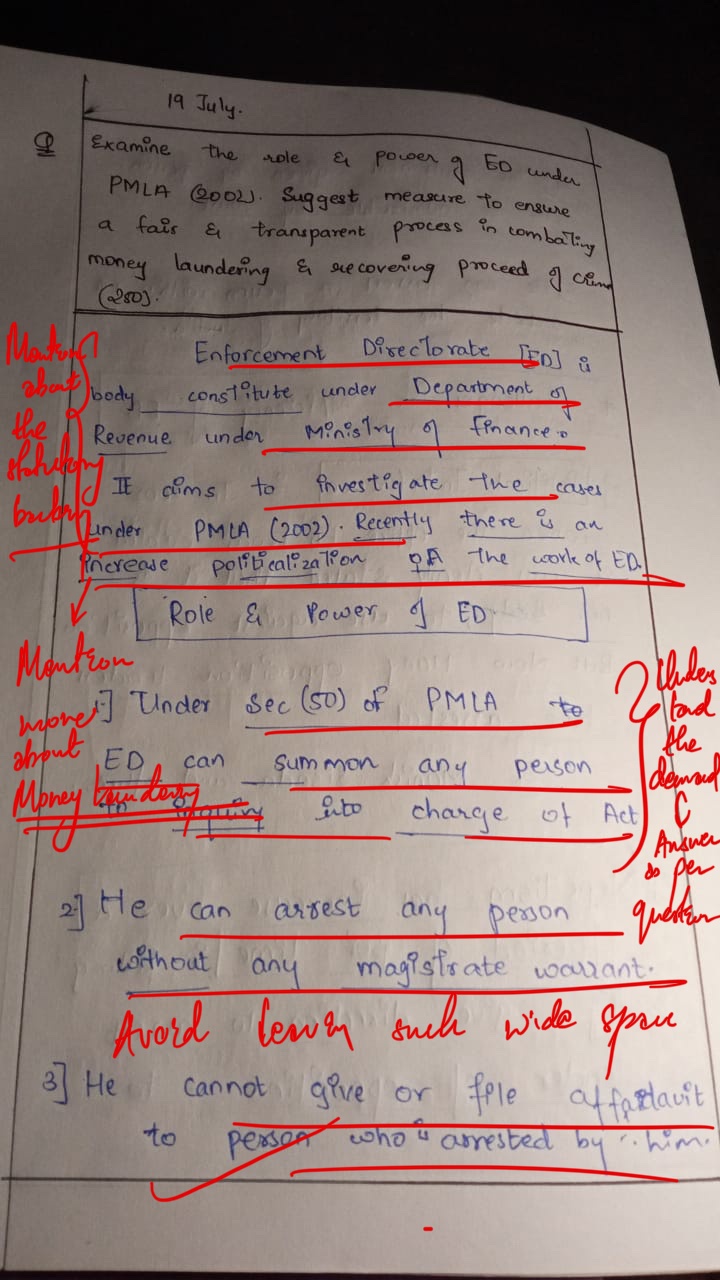 19 July.
Q Examine the role & power of ED under
PMLA (2002). Suggest measure to ensure
a fair & transparent process in combating
money laundering & recovering proceed of crime
(250).
Enforcement Directorate [ED] is
body constitute under Department of
Revenue under Ministry of Finance.
It aims to investigate the cases
under PMLA (2002). Recently there is an
increase politicalization of the work of ED.
Mention
about
the
statutory
Mention
more
about
Money laundering
Role & Power of ED
1] Under Sec (50) of PMLA to
ED can summon any person
to inquiry into charge of Act
Unders
tand
the
demand
&
Answer
as per
question
2] He can arrest any person
without any magistrate warrant.
Avoid leaving such wide space
3] He cannot give or file affidavit
to person who is arrested by him.